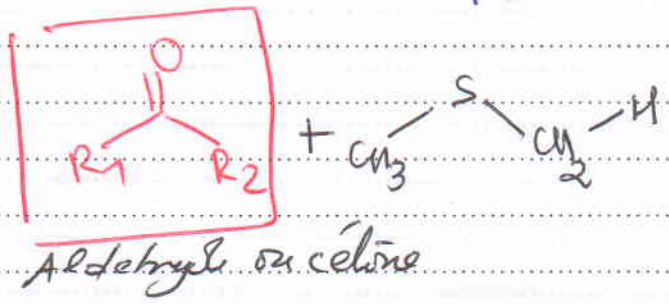 O
R1 R2 + CH3 S CH2 H
Aldehyde ou cétone